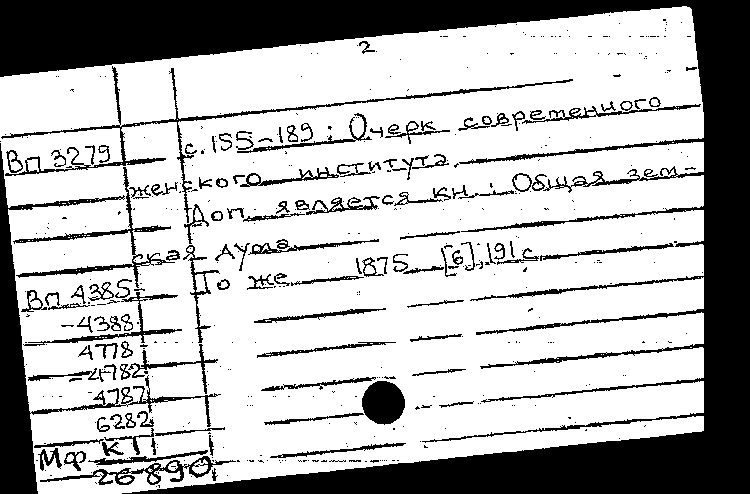 2
Вп 3279 с. 155-189: Очерк современного
женского института.
Доп. является кн.: Общая зем-
ская дума
Вп 4385- То же 1875 [6], 191 с.
-4388
4778-
-4782
4787
6282
Мф К1
26890